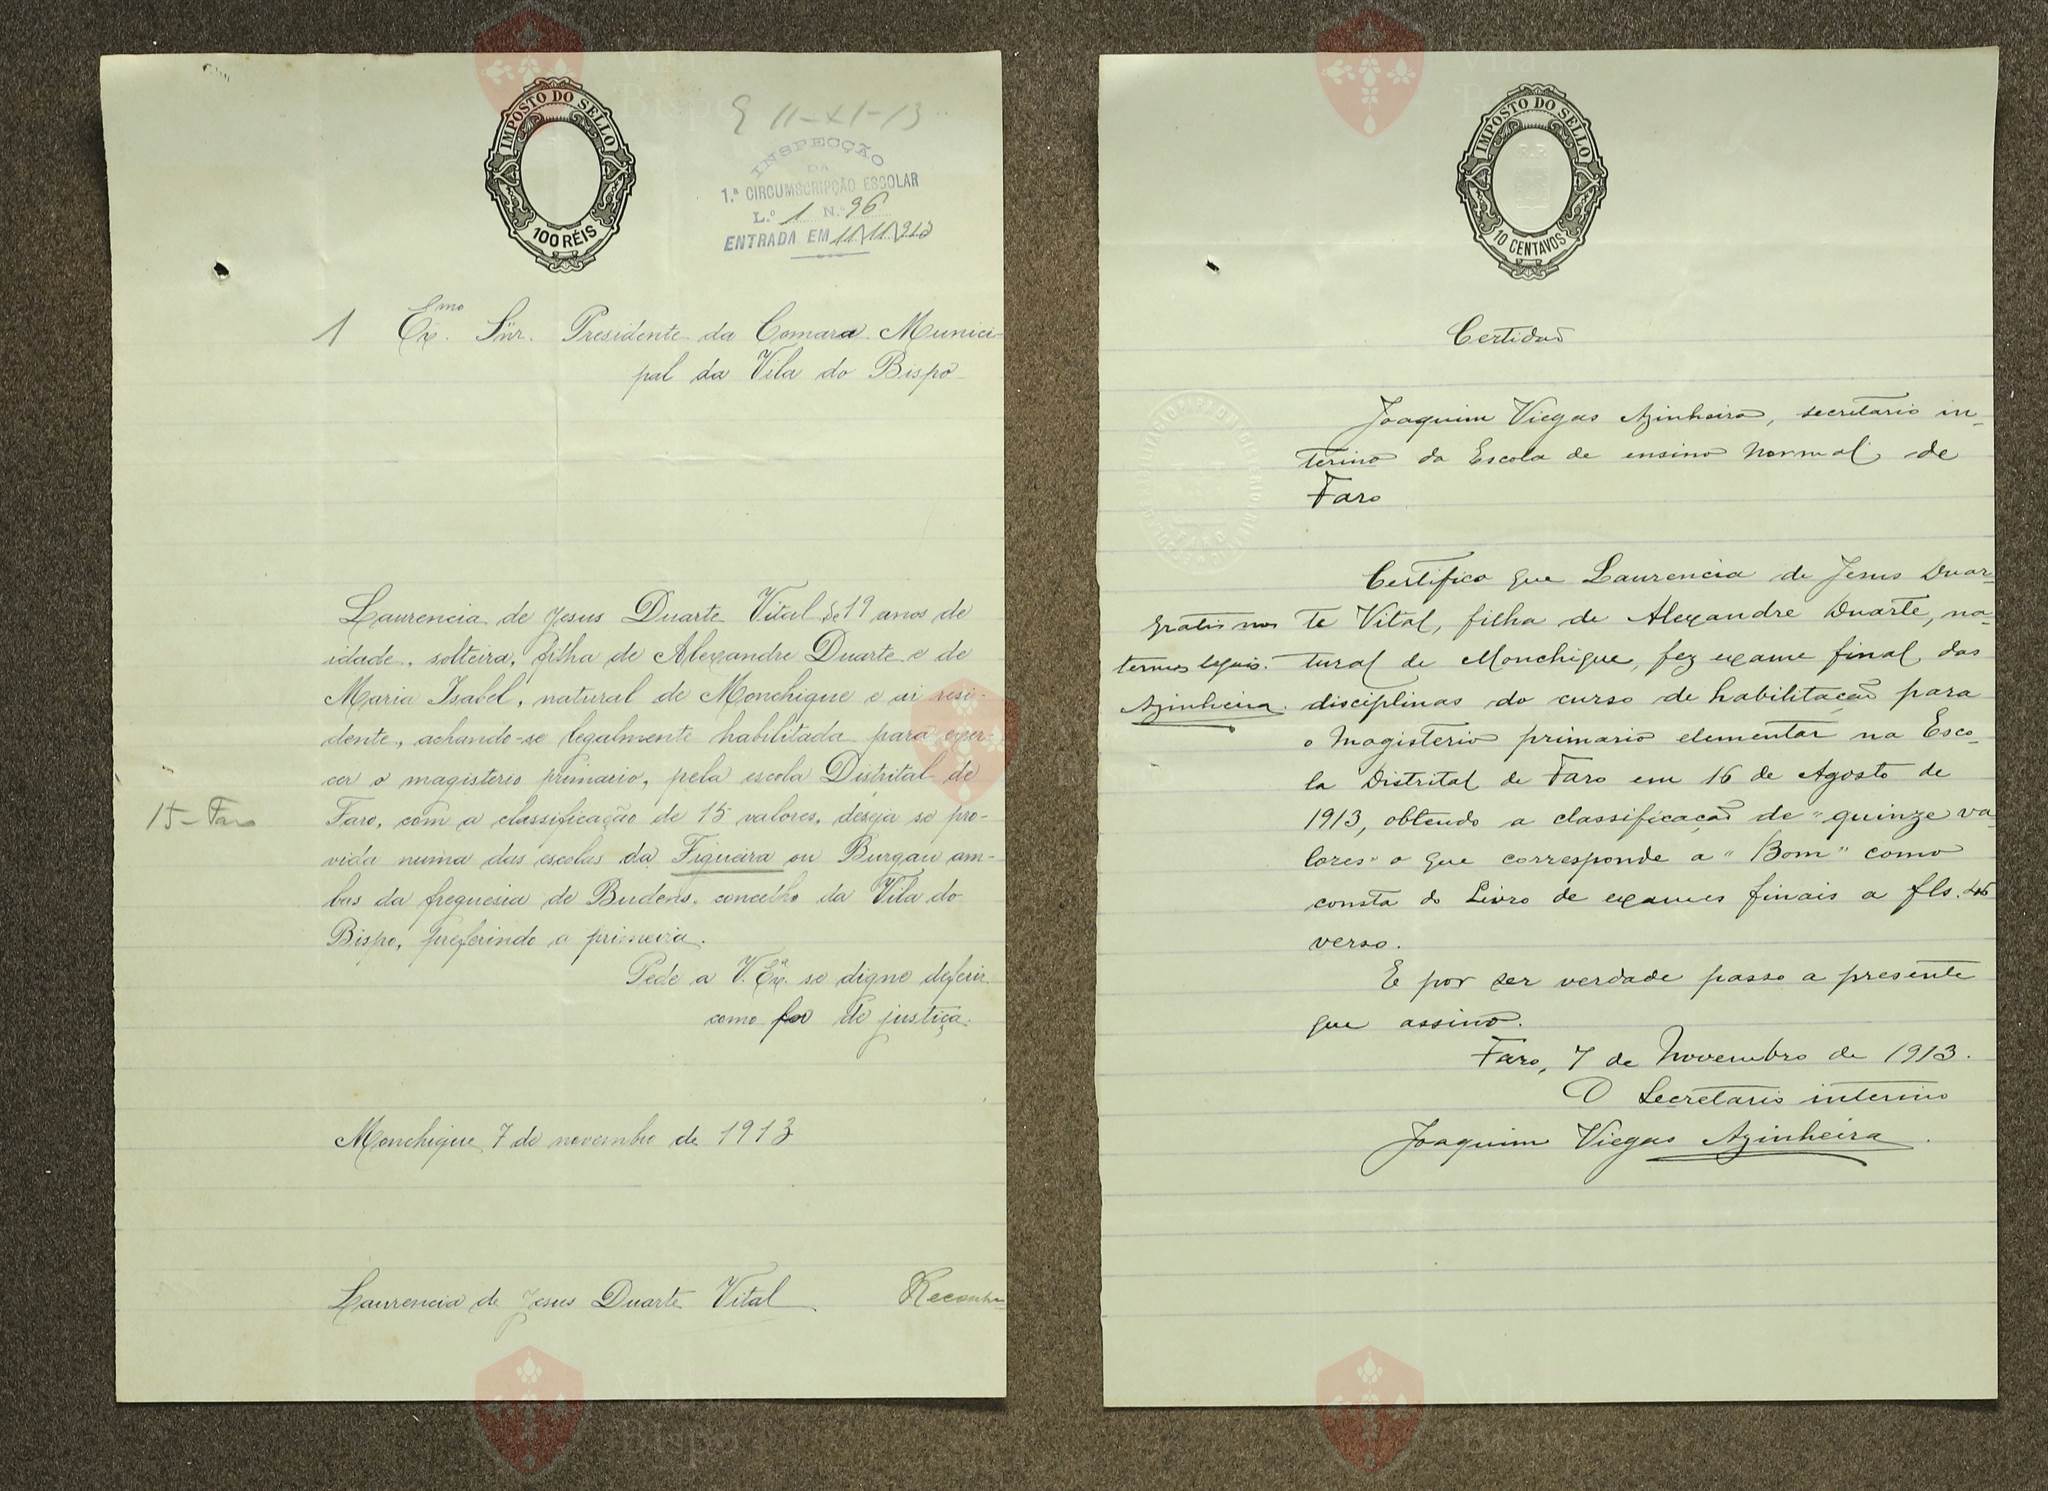 IMPOSTO DO SELLO
100 RÉIS
E 11-XI-13
INSPECÇÃO
DA
1.ª CIRCUMSCRIPÇÃO ESCOLAR
L.º 1 N.º 96
ENTRADA EM 11/11/913
1 Exmo. Snr. Presidente da Comara Munici-
pal da Vila do Bispo
Laurencia de Jesus Duarte Vital de 19 anos de
idade, solteira, filha de Alexandre Duarte e de
Maria Isabel, natural de Monchique e ai resi-
dente, achando-se legalmente habilitada para exer-
cer o magisterio primario, pela escola Distrital de
15-Faro
Faro, com a classificação de 15 valores, deseja se pro-
vida numa das escolas da Figueira ou Burgau am-
bas da freguesia de Budens, concelho da Vila do
Bispo, preferindo a primeira.
Pede a V. Exª. se digne deferir
como for de justiça.
Monchique 7 de novembro de 1913
Laurencia de Jesus Duarte Vital
Reconhe
IMPOSTO DO SELLO
10 CENTAVOS
Certidão
Joaquim Viegas Azinheira, secretario in-
terino da Escola de ensino normal de
Faro
Certifico que Laurencia de Jesus Duar-
te Vital, filha de Alexandre Duarte, na-
tural de Monchique, fez exame final das
disciplinas do curso de habilitação para
o Magisterio primario elementar na Esco-
la Distrital de Faro em 16 de Agosto de
1913, obtendo a classificação de "quinze va-
lores" o que corresponde a "Bom" como
consta do Livro de exames finais a fls. 46
verso.
Gratis nos
termos legais.
Azinheira.
E por ser verdade passo a presente
que assino.
Faro, 7 de Novembro de 1913.
O Secretario interino
Joaquim Viegas Azinheira.
Vila do
Bispo